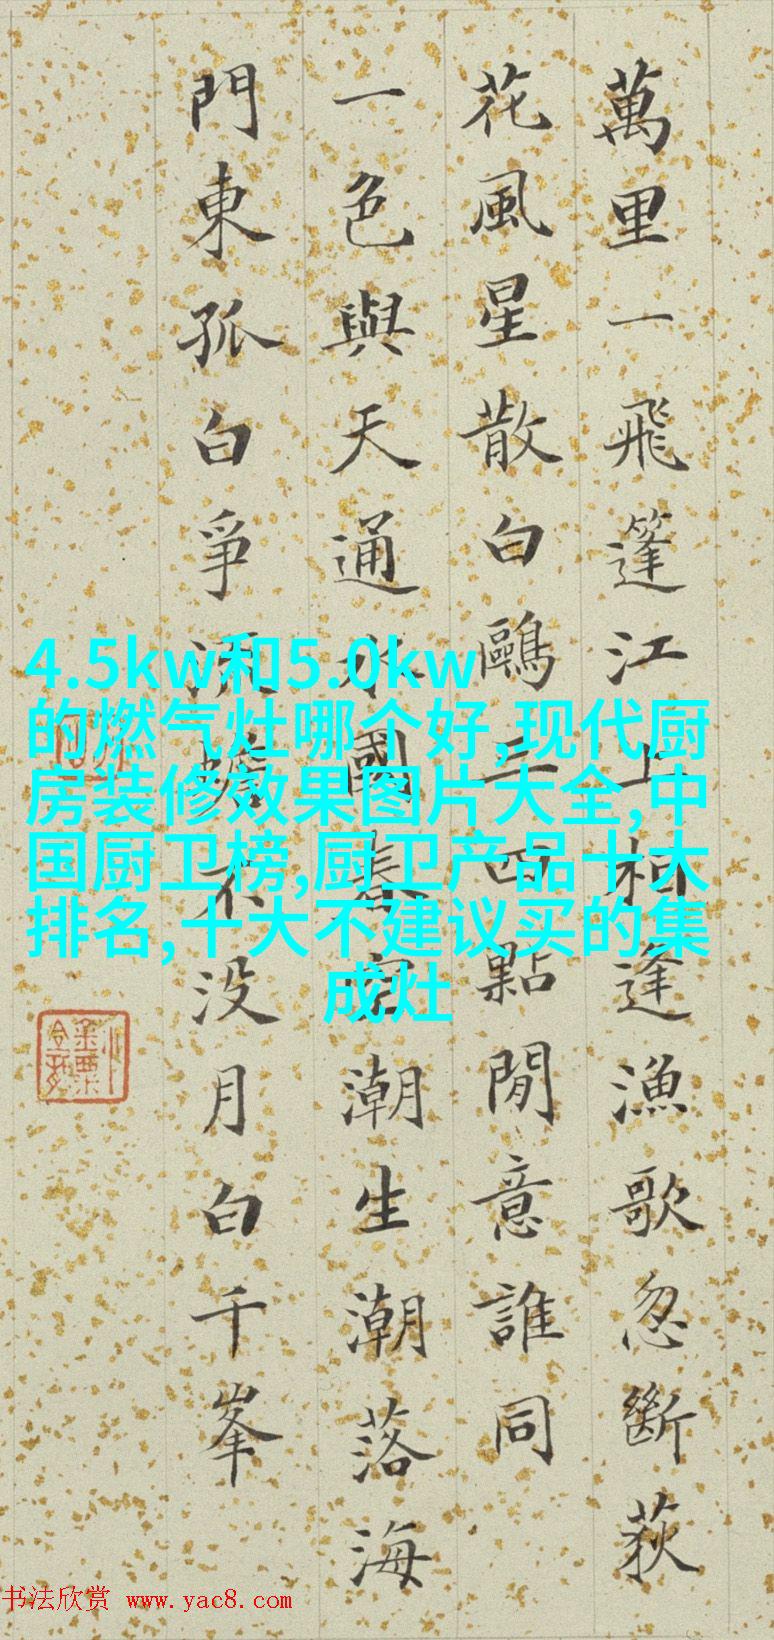 萬里一飛篷江上相逢漁歌忽斷荻
花風星散白鷗三四點閒意誰同
一色與天通水國春潮生潮落海
門東孤白爭流不没月白千峯
4.5kw和5.0kw
的燃气灶哪个好,现代厨
房装修效果图片大全,中
国厨卫榜,厨卫产品十大
排名,十大不建议买的集
成灶
书法欣赏 www.yac8.com